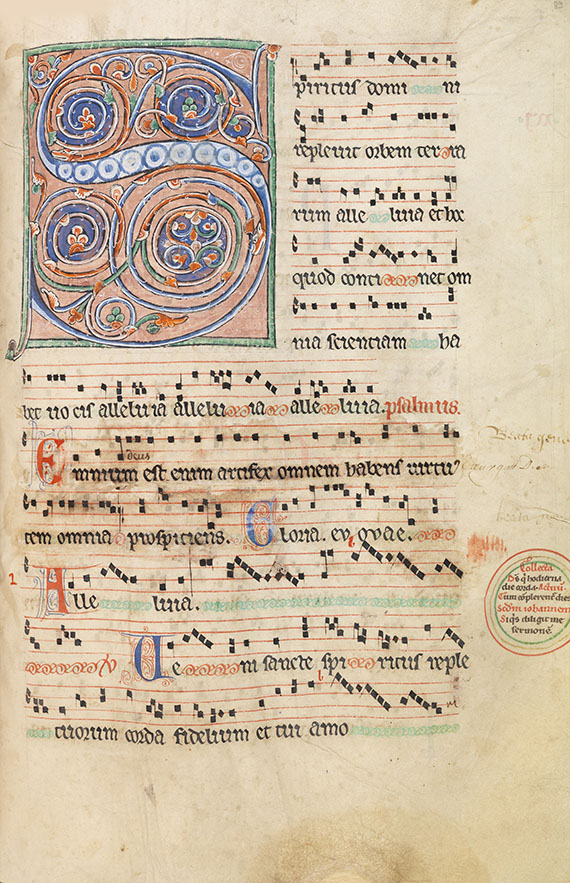 Spiritus domini
replevit orbem terra
rum alle luia et hoc
quod continet om
nia scienciam ha
bet vocis alleluia alleluia alleluia. psalmus.
deus
Omnium est enim artifex omnem habens virtu
tem omnia prospiciens. Gloria. evovae.
Alle luia.
V Veni sancte spiritus reple
tuorum corda fidelium et tui amo
Collecta
Ds q hodierna
die corda. Actuu
Cum complerent dies
Scdm iohannem
Siqs diligit me
sermone.
Beata gens
beata